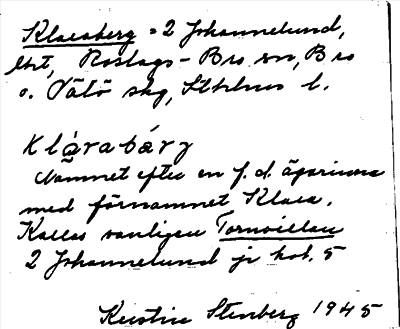 Klaraberg = 2 Johannelund,
lht, Roslags-Bro sn, Bro
o. Vätö skg, Sthlms l.
Klàrabárj
Namnet efter en f.d. ägarinna
med förnamnet Klara.
Kallas vanligen Tornvillan
2 Johannelund je kbl. 5
Kerstin Stenberg 1945